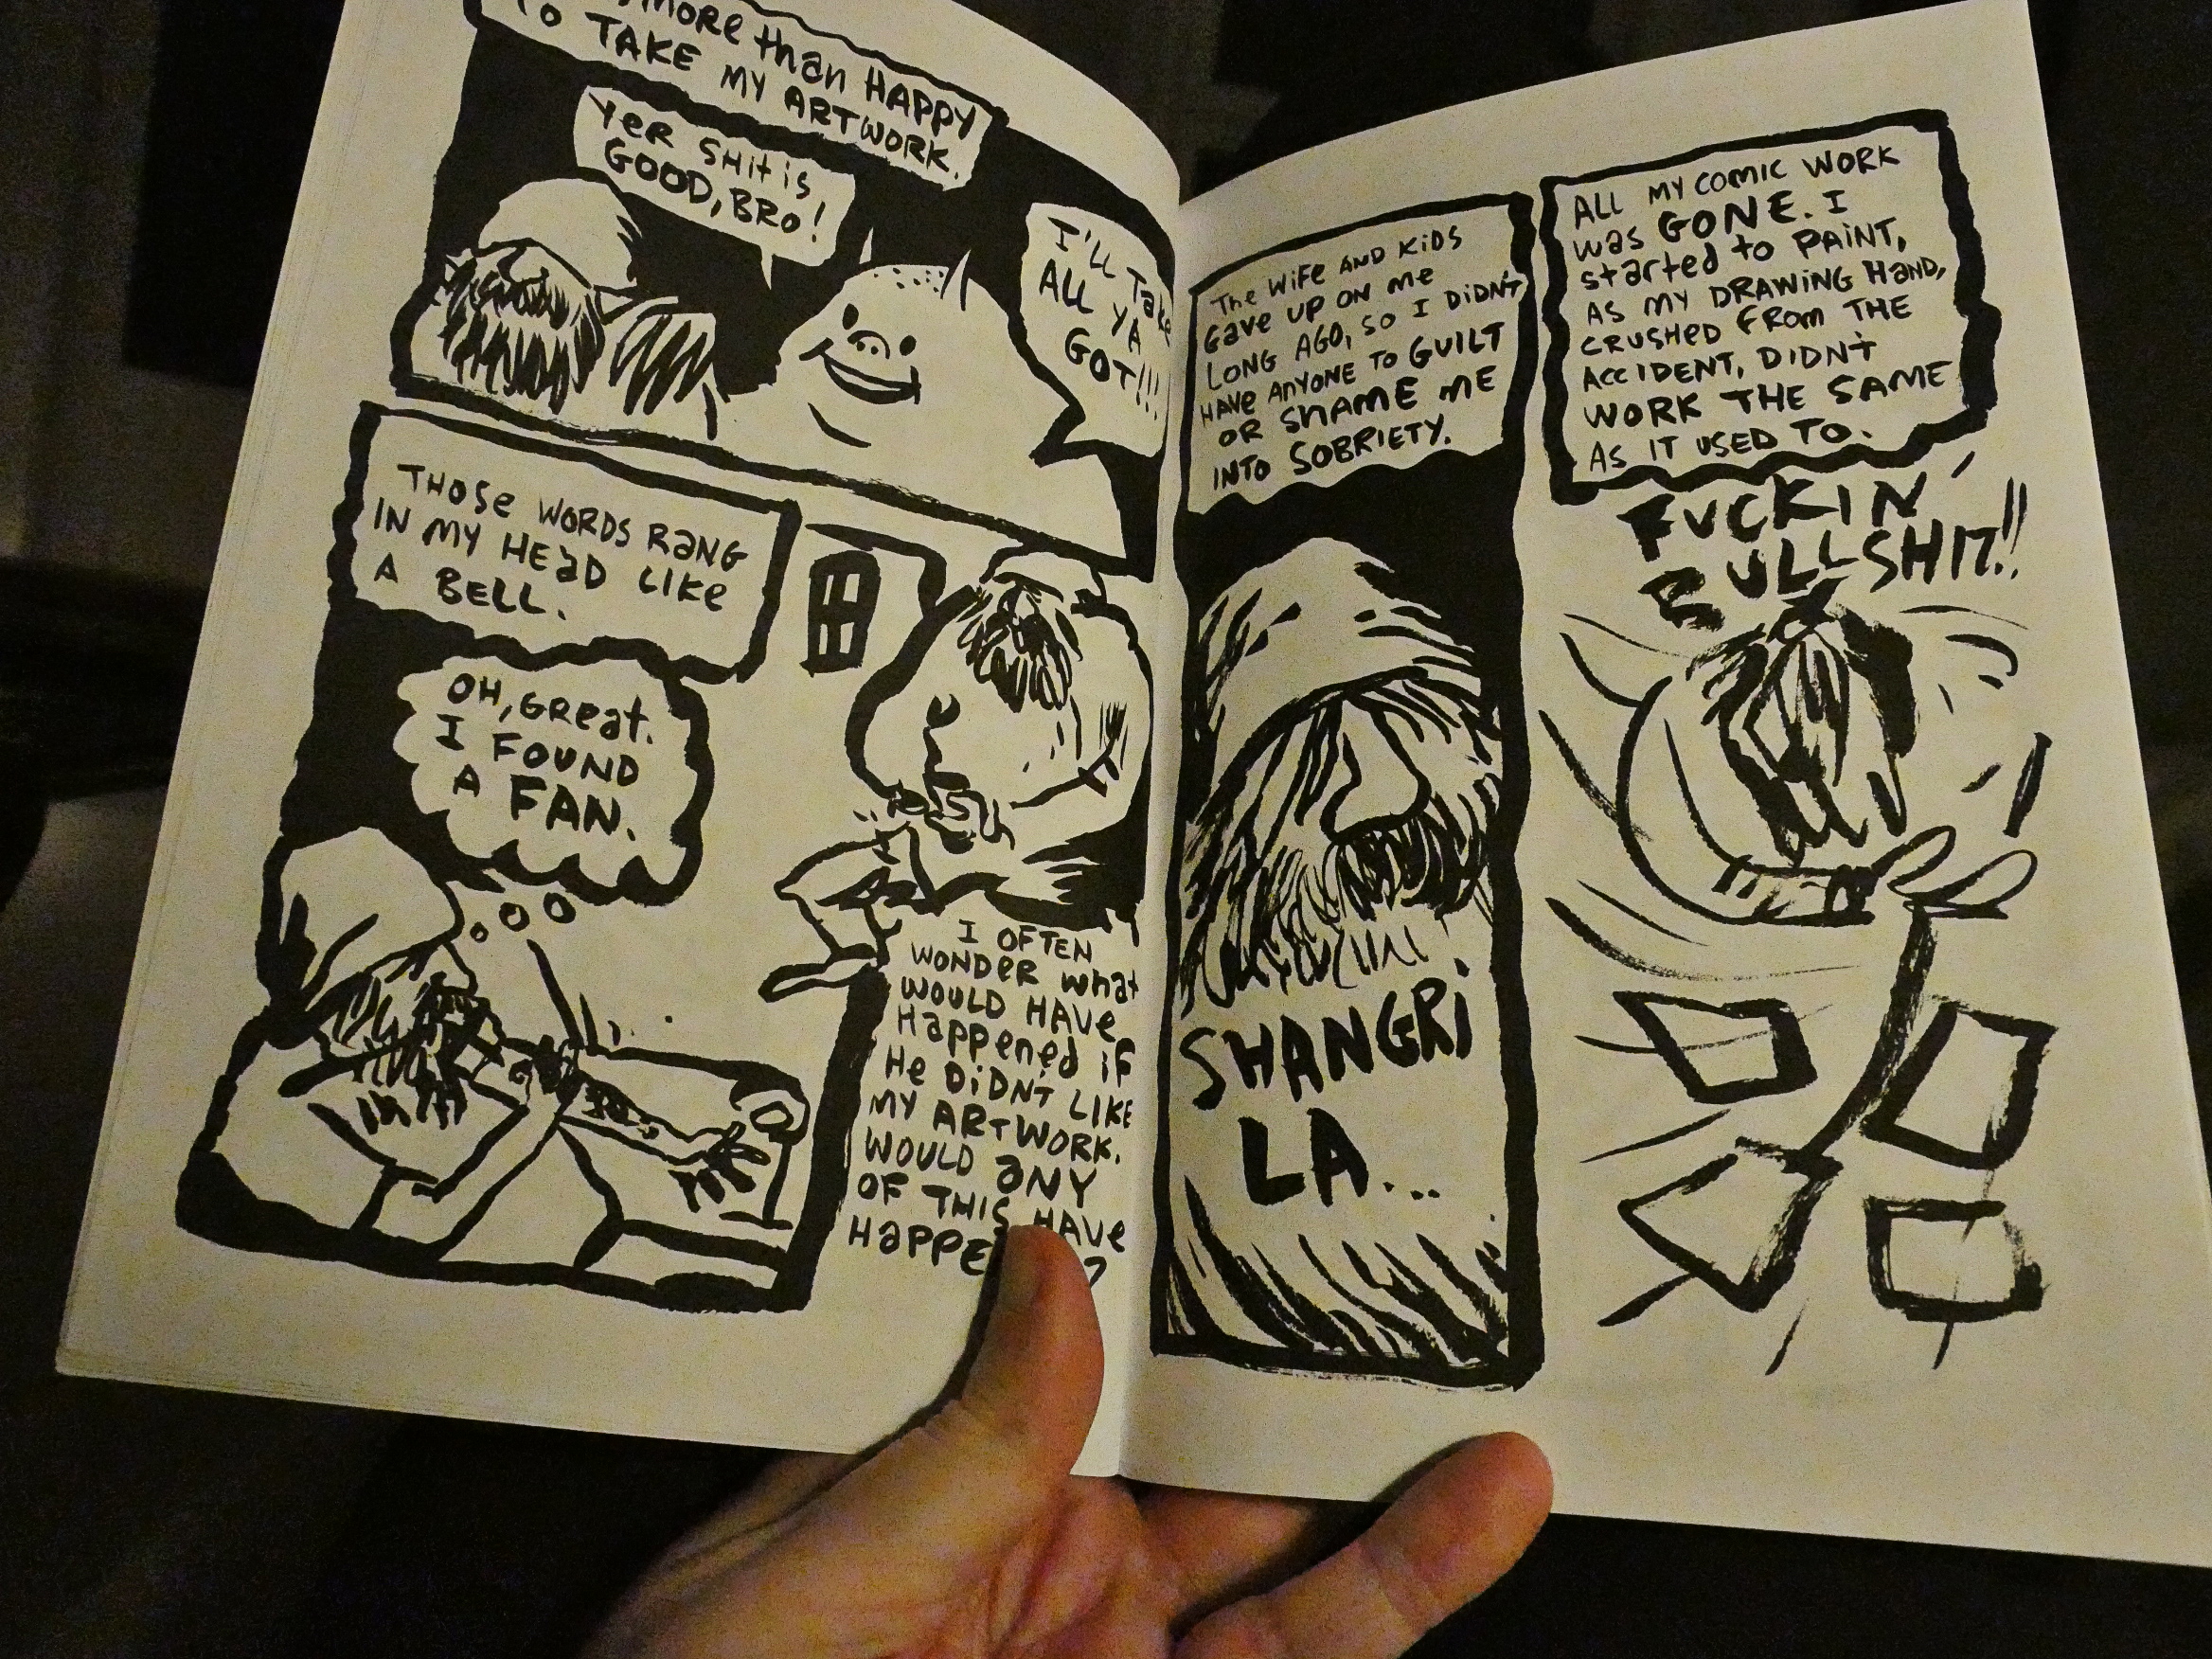 more than HAPPY
TO TAKE MY ARTWORK.
Yer SHit is
GOOD, BRO!
I'LL Take
ALL YA
GOT!!!
THOSe WORDS RaNG
IN MY HEaD LIKe
A BELL.
OH, GReat.
I FOUND
A FAN.
I OFTEN
WONDeR what
WOULD HAVe
Happened iF
He DiDNt LIKE
MY ARtWORK.
WOULD aNY
OF THIS HAVe
The WiFe AND KiDS
Gave UP ON me
LONG AGO, SO I DiDN't
HAVe ANYONE TO GUILT
OR SHAME ME
INTO SOBRIETY.
SHANGRi
LA...
ALL MY COMIC WORK
was GONE. I
started to PAiNT,
AS MY DRAWING HaND,
CRUSHED FROM THE
ACCIDENT, DIDN't
WORK THE SAME
AS IT USED TO.
FUCKIN'
BULLSHIT!!